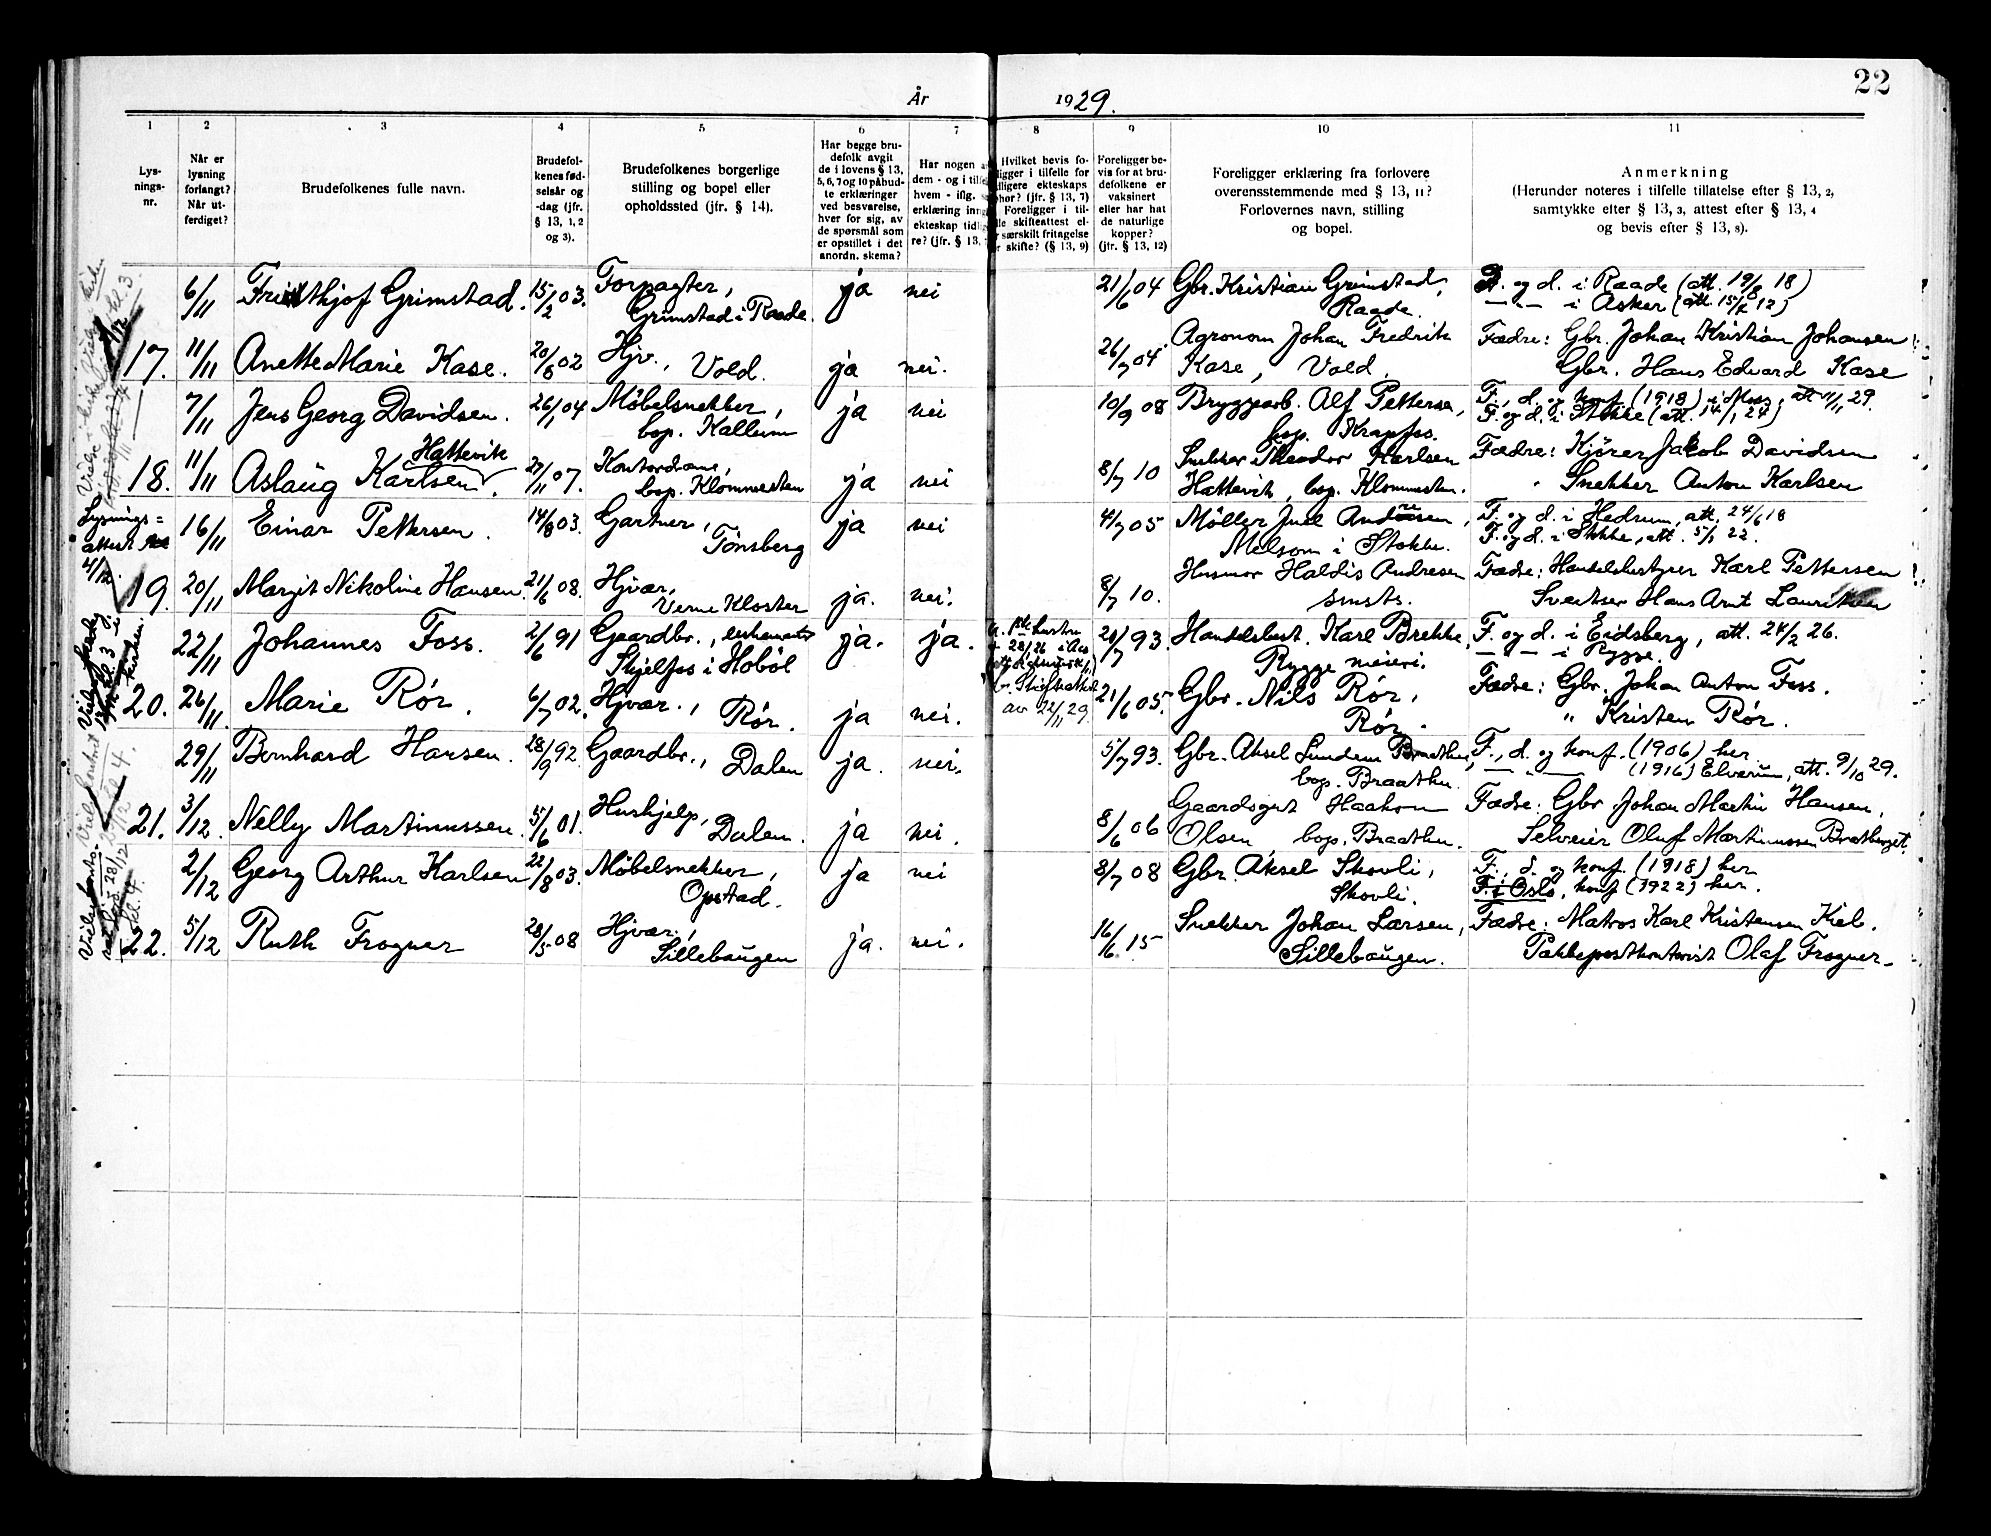 22
År 1929.
1 2 3 4 5 6 7 8 9 10 11
Lys-
nings-
nr.
Når er
lysning
forlangt?
Når ut-
ferdiget?
Brudefolkenes fulle navn.
Brudefol-
kenes fød-
selsår og
-dag (jfr.
§ 13, 1, 2
og 3).
Brudefolkenes borgerlige
stilling og bopel eller
opholdssted (jfr. § 14).
Har begge bru-
defolk avgit
de i lovens § 13,
5, 6, 7 og 10 påbud-
te erklæringer
ved besvarelse,
hver for sig, av
de spørsmål som
er opstillet i det
anordn. skema?
Har nogen
dem - og i
hvem - ifig.
erklæring inng
ekteskap tidlig
re? (jfr. § 13,
Hvilket bevis fo-
ligger i tilfelle for
dligere ekteskaps
phør? (jfr. § 13, 7)
Foreligger i til-
lle skifteattest el-
særskilt fritagelse
skifte? (§ 13, 9)
Foreligger be-
vis for at bru-
defolkene er
vaksinert
eller har hat
de naturlige
kopper?
(jfr. § 13, 12)
Foreligger erklæring fra forlovere
overensstemmende med § 13, 11?
Forlovernes navn, stilling
og bopel.
Anmerkning
(Herunder noteres i tilfelle tillatelse efter § 13, 2,
samtykke efter § 13, 3, attest efter § 13, 4
og bevis efter § 13, 8).
6/11 Fridthjof Grimstad. 15/2 03. Forpagter, ja nei 21/6 04 Gbr. Kristian Grimstad, F. og d. i Raade (att. 19/8 18)
Grimstad i Raade. Raade. — " — i Asker (att. 15/4 12)
17. 11/11 Anette Marie Kase. 20/8 02 Hjv., Vold. ja nei. 26/7 04 Agronom Johan Fredrik Fædre: Gbr. Johan Kristian Johansen
Kase, Vold. Gbr. Hans Edvard Kase
7/11 Jens Georg Davidsen. 26/1 04 Møbelsnekker, ja nei 10/9 08 Bryggearb. Alf Pettersen, F., d. og konf. (1918) i Moss, att. 4/11 29.
bop. Kallum bop. Krapfos. F. og d. i Stokke (att. 14/1 24)
Hattevik
18. 11/11 Aslaug Karlsen. 27/11 07. Kontordame, ja nei 8/7 10 Snekker Theodor Karlsen Fædre: Kjører Jakob Davidsen
bop. Klommesten Hattevik, bop. Klommesten. Snekker Anton Karlsen
Lysnings=
attest
4/12.
16/11 Einar Pettersen. 14/8 03. Gartner, ja nei 4/7 05 Møller Juel Andresen, F. og d. i Hedrum, att. 24/6 18
Tønsberg Melsom i Stokke. F. og d. i Stokke, att. 5/1 22.
19. 20/11 Margit Nikoline Hansen. 21/6 08. Hjvær, ja. nei. 8/7 10. Husmor Haldis Andresen Fædre: Handelsbestyrer Karl Pettersen
Verne Kloster smsts. Sveitser Hans Arnt Lauritsen
22/11 Johannes Foss. 2/6 91 Gaardbr., enkemand ja. ja. 20/7 93. Handelsbest. Karl Brekke, F. og d. i Eidsberg, att. 24/2 26.
Skjelfos i Hobøl Rygge meieri. — " — i Rygge.
b. Skifteattest
av 22/11 29.
20. 26/11. Marie Rør. 6/7 02. Hjvær., Rør. ja nei. 21/6 05. Gbr. Nils Rør, Fædre: Gbr. Johan Anton Foss.
Rør. " Kristen Rør.
29/11 Bernhard Hansen. 28/9 92 Gaardbr., Dalen ja. nei. 5/7 93. Gbr. Aksel Lundem Braathen, F., d. og konf. (1906) her
bop. Braathen. — " — (1916) Elverum, att. 9/10 29.
21. 3/12. Nelly Martinussen. 5/6 01. Hushjelp, Dalen. ja nei. 8/6 06 Gaardsgut Haakon Fædre: Gbr Johan Martin Hansen,
Olsen bop. Braathen. Selveier Oluf Martinussen Bratberget.
2/12 Georg Arthur Karlsen 22/8 03. Møbelsnekker, ja nei 8/7 08 Gbr. Aksel Skovli, F., d. og konf. (1918) her
Opstad. Skovli. F. i Oslo, konf (1922) her.
22. 5/12 Ruth Frogner 28/5 08 Hjvær., ja. nei. 16/6 15 Snekker Johan Larsen, Fædre: Matros Karl Kristensen Kiel.
Sillebaugen Sillebaugen. Pakkepostkontorist Olaf Frogner